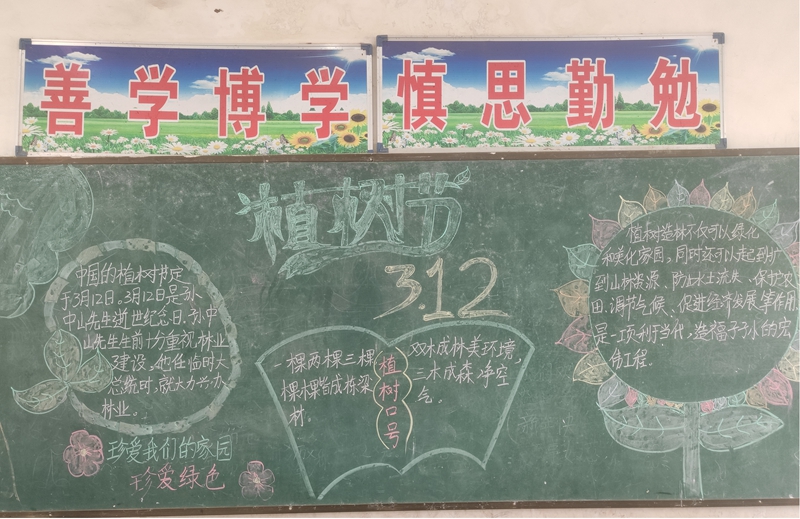 善学博学
慎思勤勉
植树节
3.12
中国的植树节定
于3月12日。3月12日是孙
中山先生逝世纪念日。孙中
山先生生前十分重视林业
建设。他任临时大
总统时,就大力兴办
林业。
珍爱我们的家园
珍爱绿色
一棵两棵三棵
棵棵皆成栋梁
材.
植树口号
双木成林美环境,
三木成森净空
气。
植树造林不仅可以绿化
和美化家园,同时还可以起到扩
到山林资源、防止水土流失、保护农
田、调节气候、促进经济发展等作用
是一项利于当代,造福子孙的宏
伟工程.